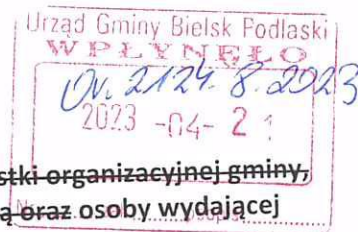 Urząd Gminy Bielsk Podlaski
WPŁYNĘŁO
Or. 2124. 8. 2023
2023 -04- 21
stki organizacyjnej gminy,
ą oraz osoby wydającej